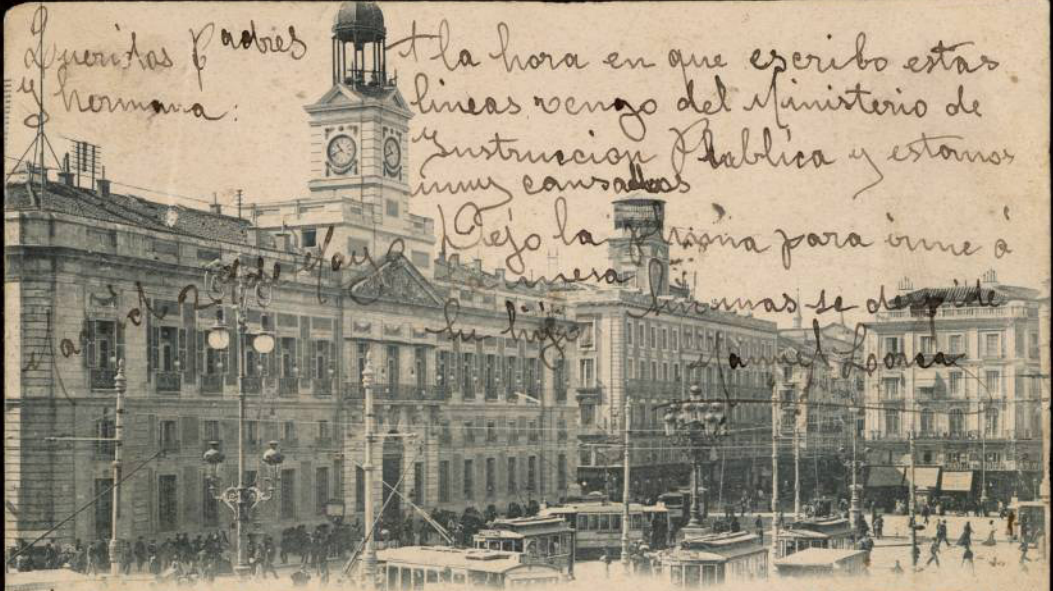 Queridos padres
y hermana:
A la hora en que escribo estas
lineas vengo del Ministerio de
Instruccion Publica y estamos
muy cansados
Dejo la pluma para irme á
la
su hijo se despide
Manuel Lorca